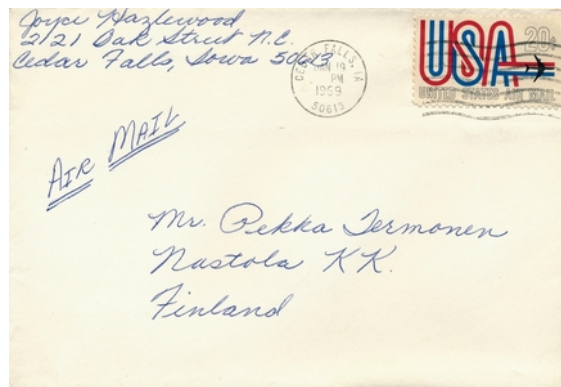 Joyce Hazlewood
2121 Oak Street N.C.
Cedar Falls, Iowa 50613
CEDAR FALLS, IA
19
PM
1969
50613
USA 20¢
UNITED STATES AIR MAIL
AIR MAIL
Mr. Pekka Termonen
Nastola KK.
Finland